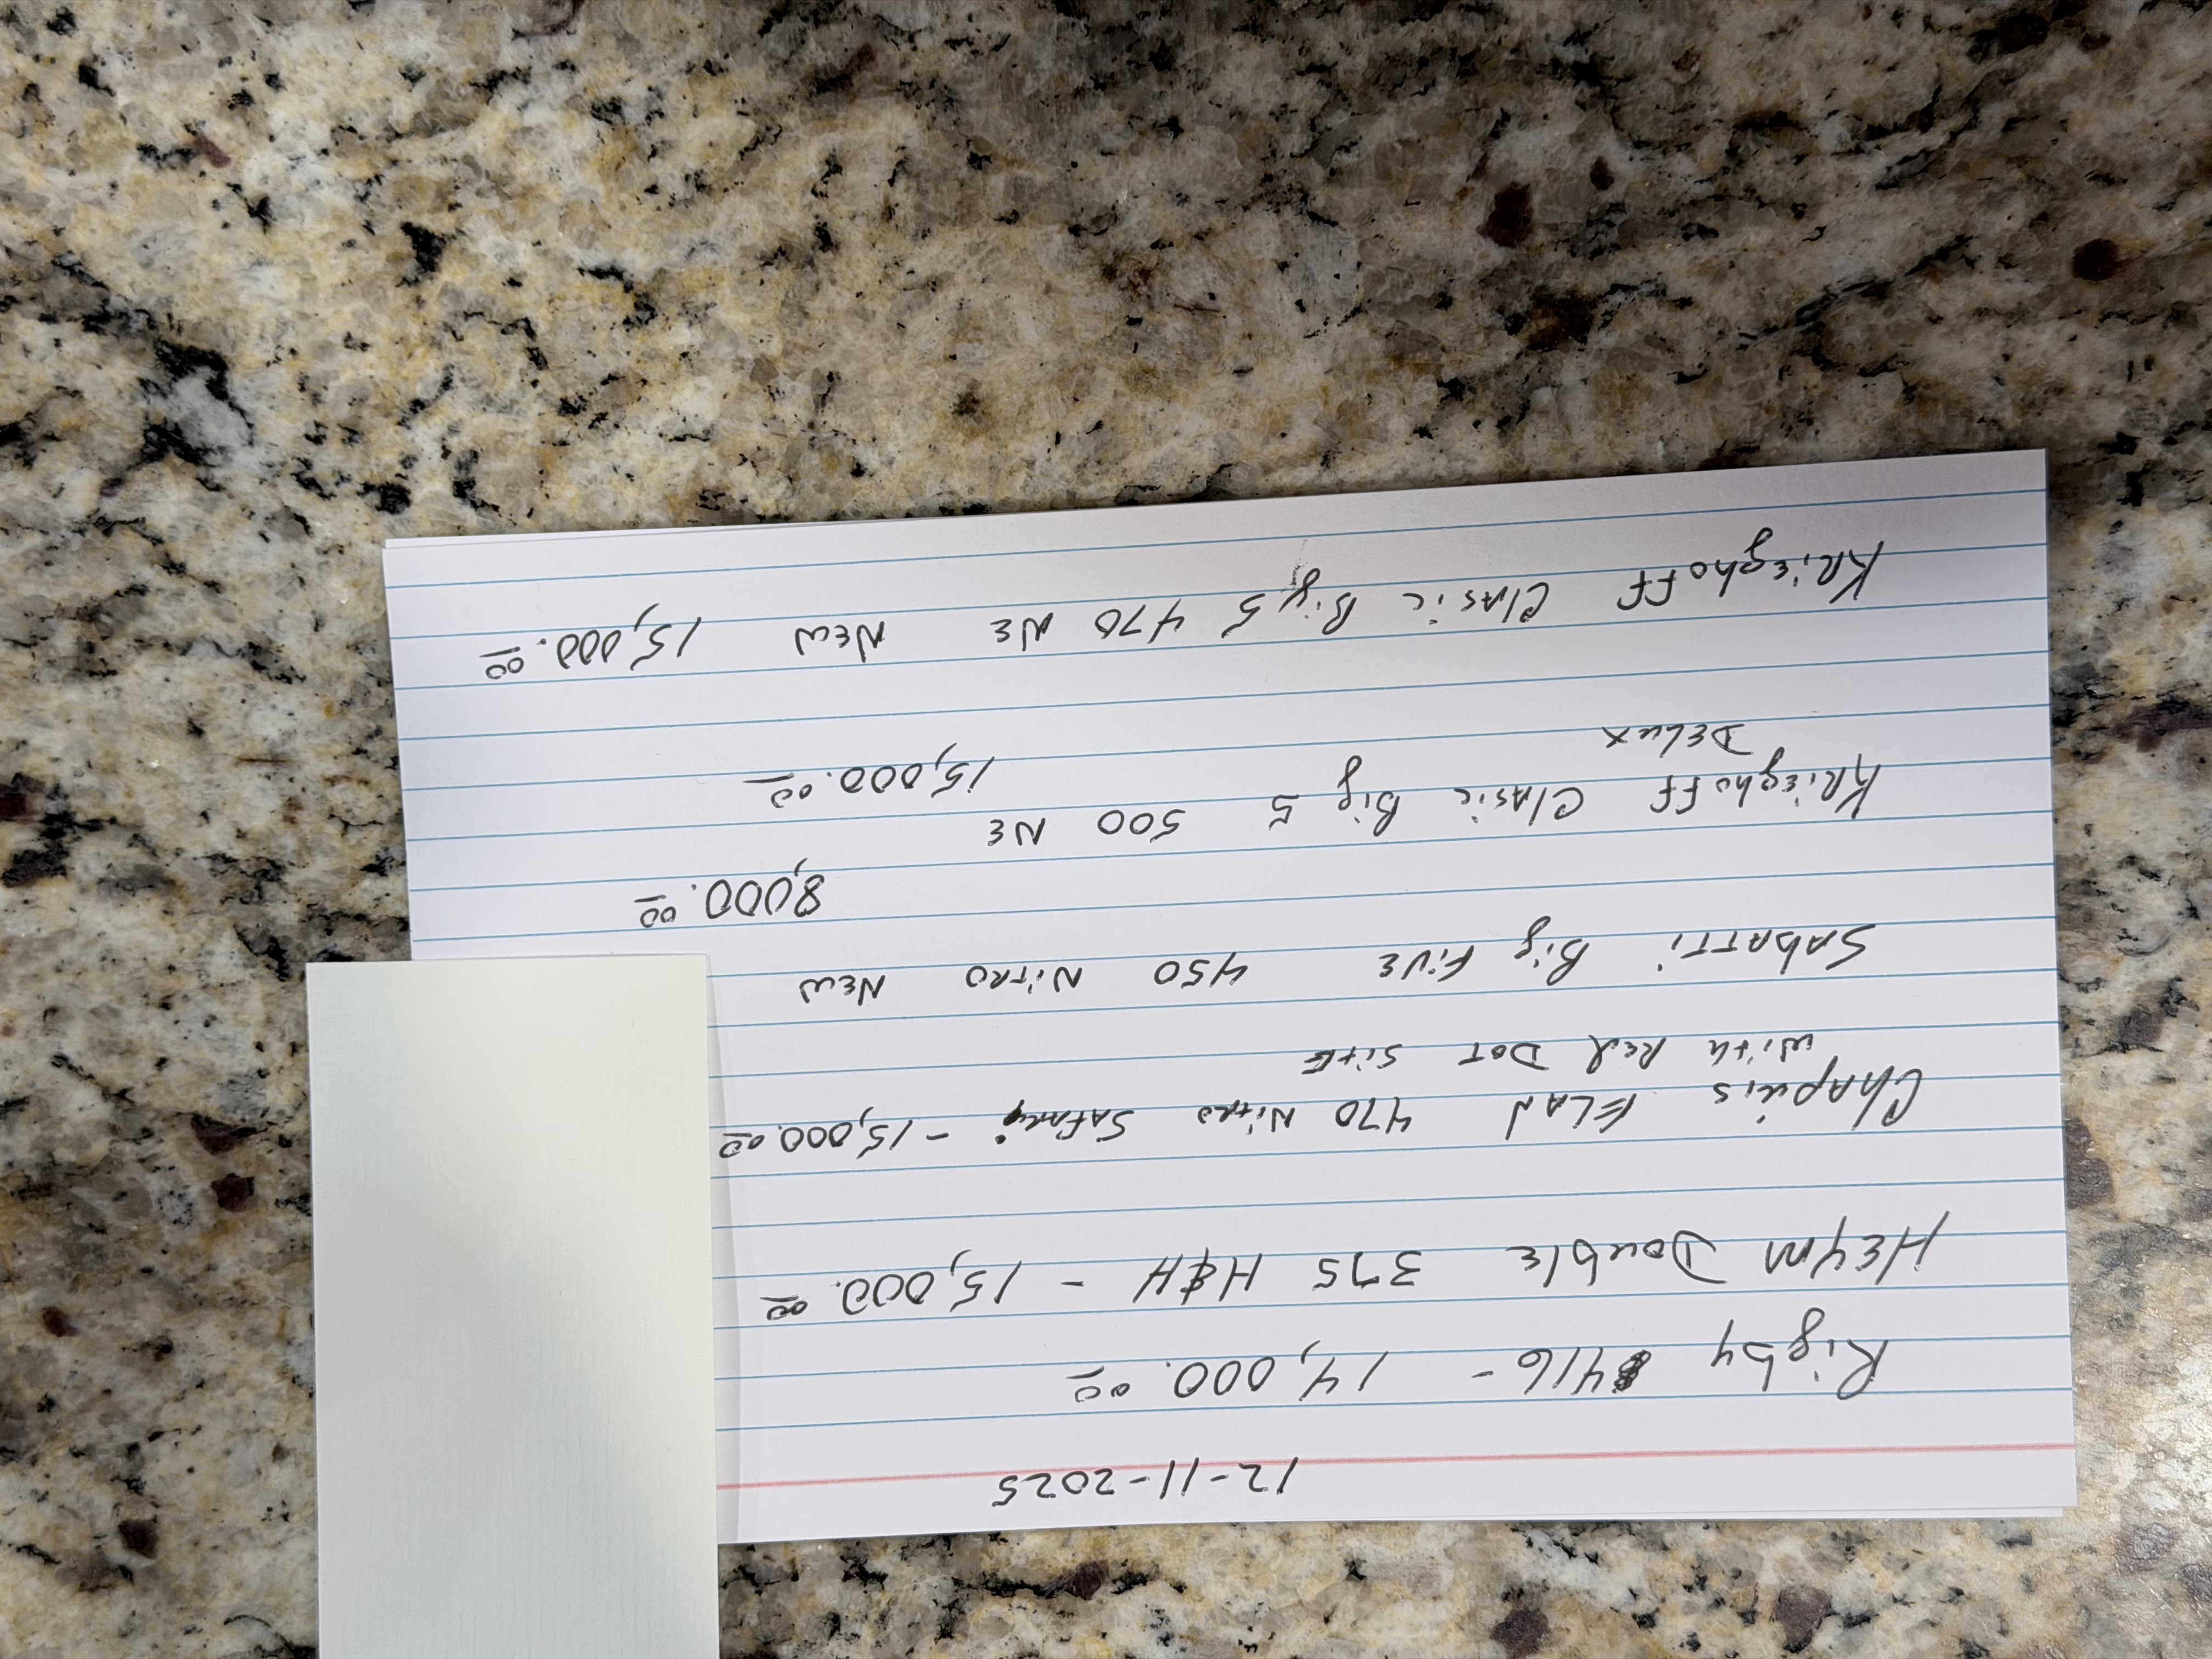 12-11-2025
Rigby 416 - 14,000.00
HEYM Double 375 H&H - 15,000.00
Chapuis ELAN 470 Nitro Safari - 15,000.00
with Red Dot sitE
SAbATTi Big FivE 450 NiTRO NEW
8,000.00
KRiEghoFF ClASic Big 5 500 NE 15,000.00
DELUX
KRiEghoFF ClASic Big 5 470 NE NEW 15,000.00